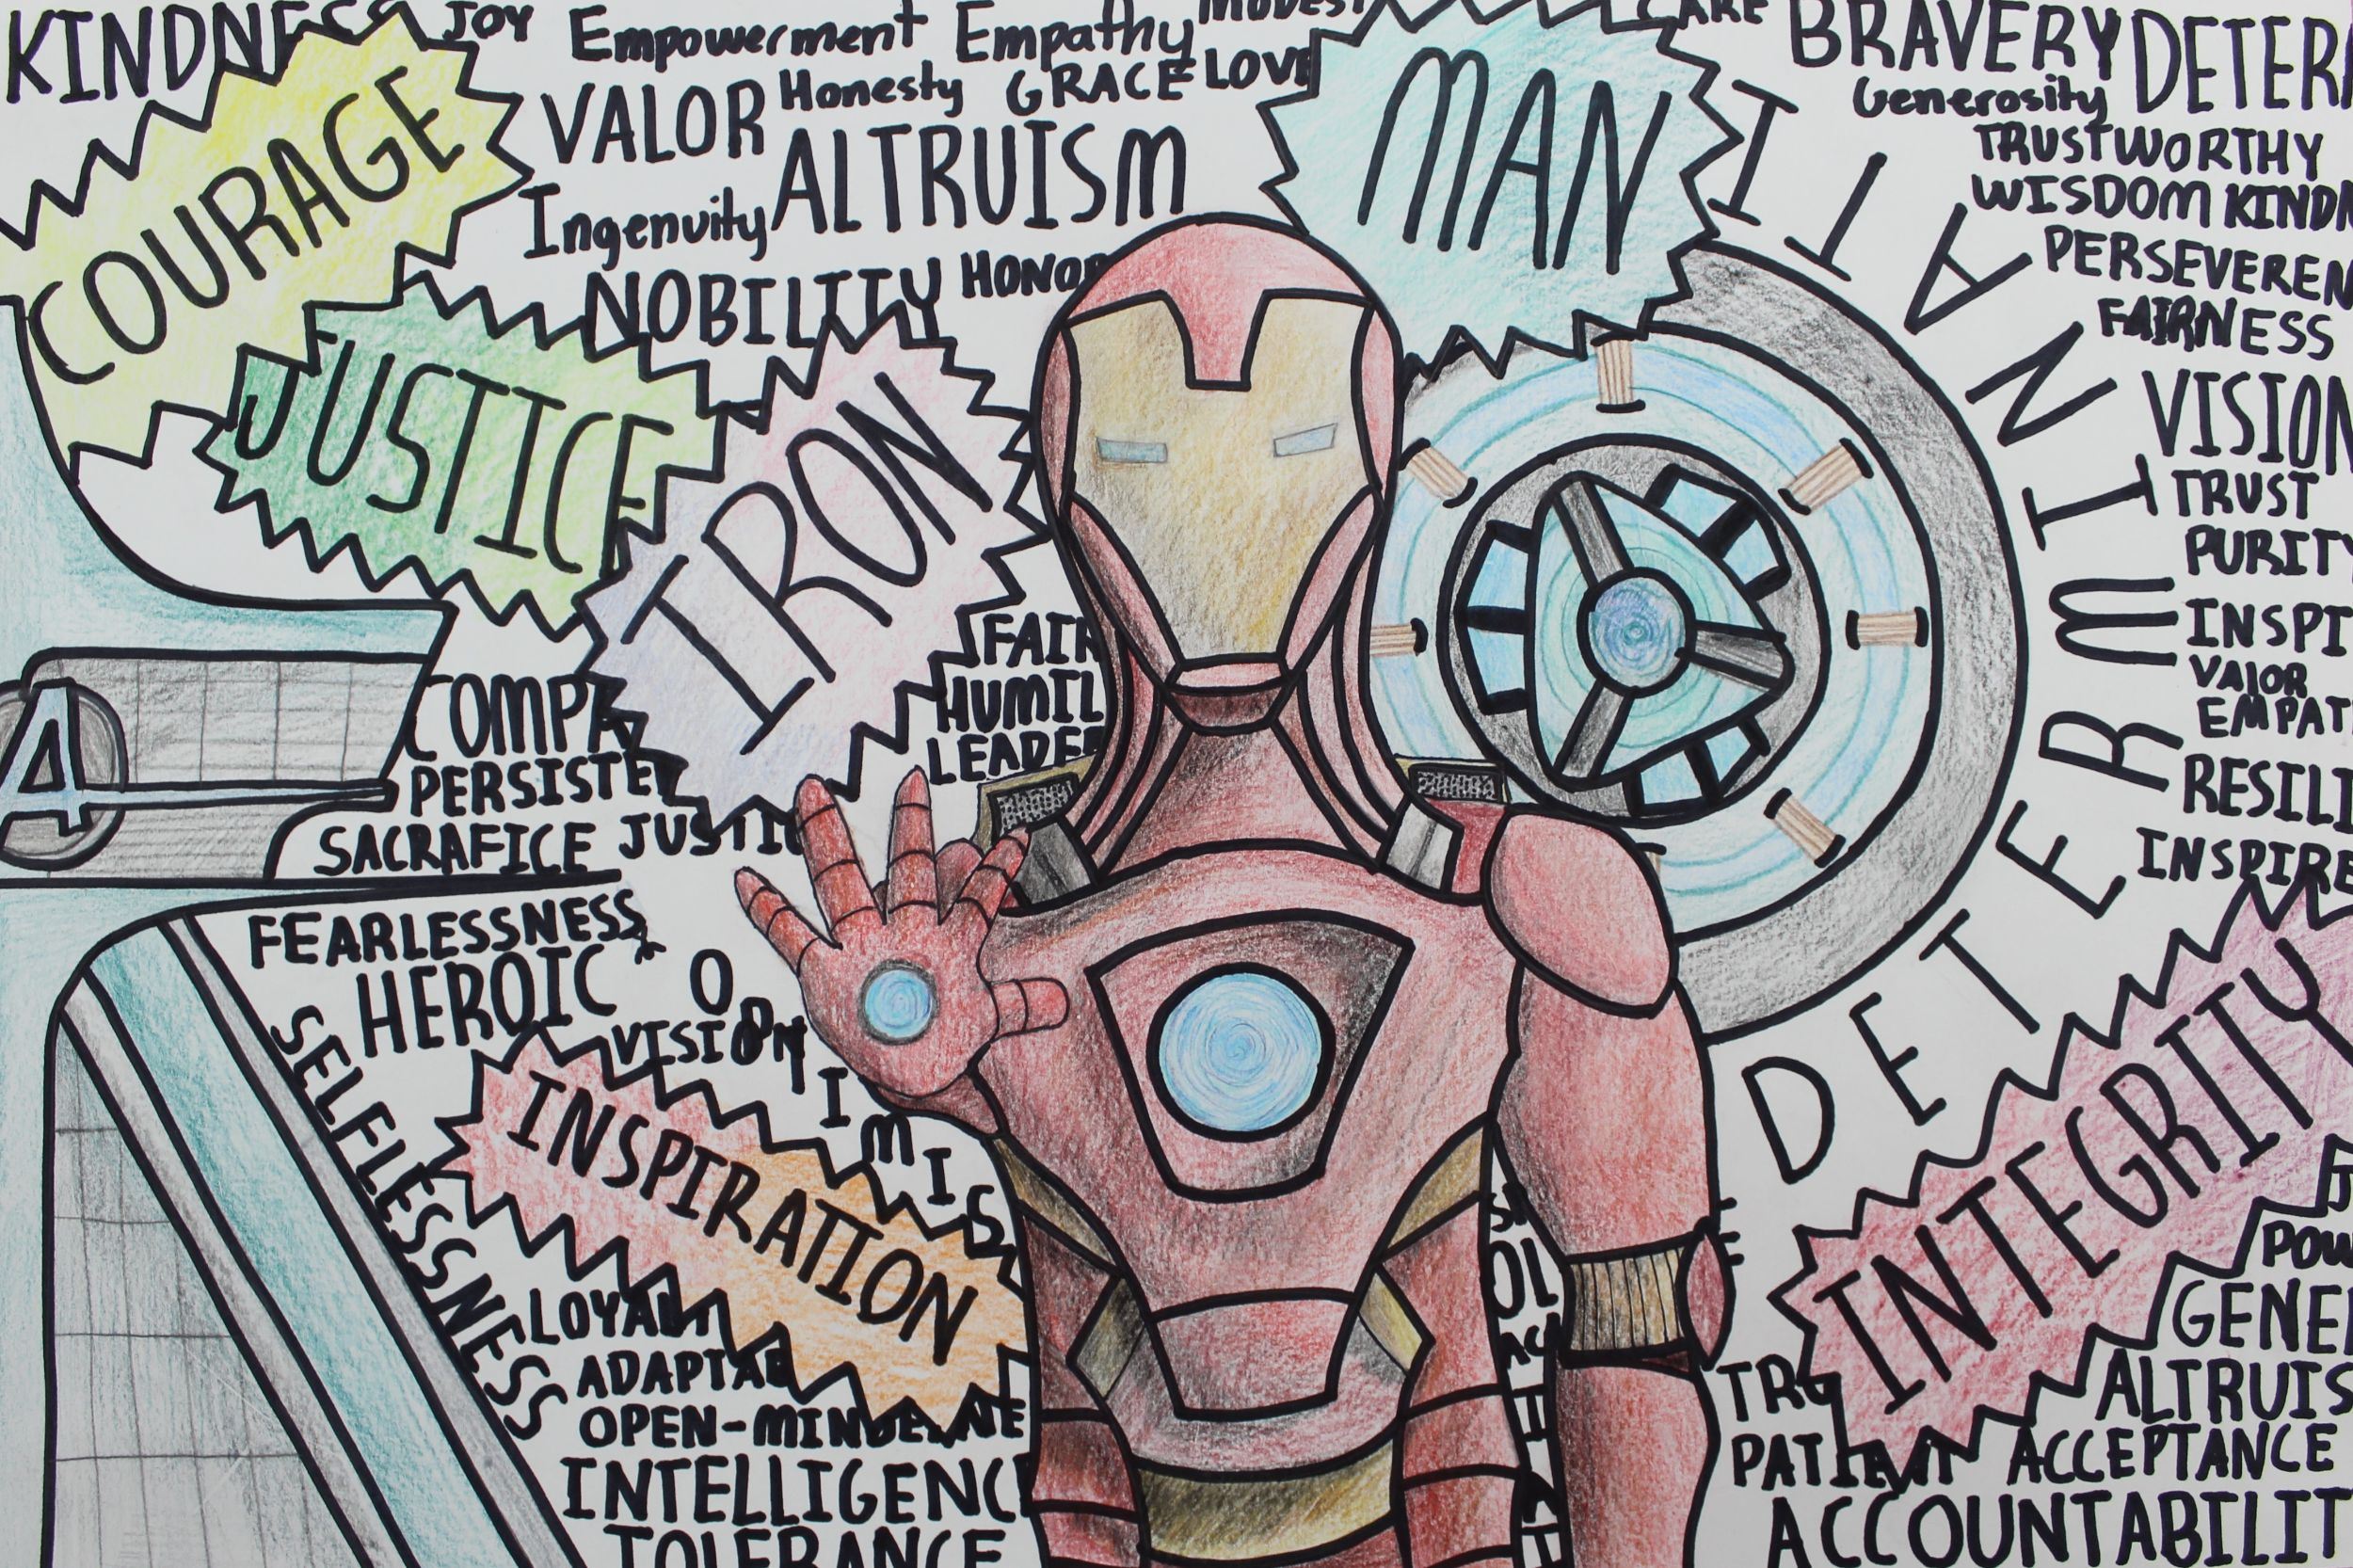 KINDNESS
JOY
Empowerment Empathy
MODEST
CARE
BRAVERY
DETER
VALOR Honesty GRACE LOVE
Generosity
TRUSTWORTHY
WISDOM KINDN
PERSEVEREN
FAIRNESS
VISION
TRUST
PURITY
INSPI
VALOR
EMPAT
RESILI
INSPIRE
COURAGE
ALTRUISM
Ingenuity
NOBILITY HONOR
MAN
JUSTICE
IRON
DETERMINATI
FAIR
HUMIL
LEADER
COMPA
PERSISTE
SACRAFICE JUSTIC
A
FEARLESSNESS
HEROIC
SELFLESSNESS
OPTIMIS
VISION
INSPIRATION
LOYALT
ADAPTAB
OPEN-MINDE
ATE
INTELLIGENC
TOLERANCE
INTEGRITY
POW
GENE
ALTRUIS
TRU
PATIENT ACCEPTANCE
ACCOUNTABILIT